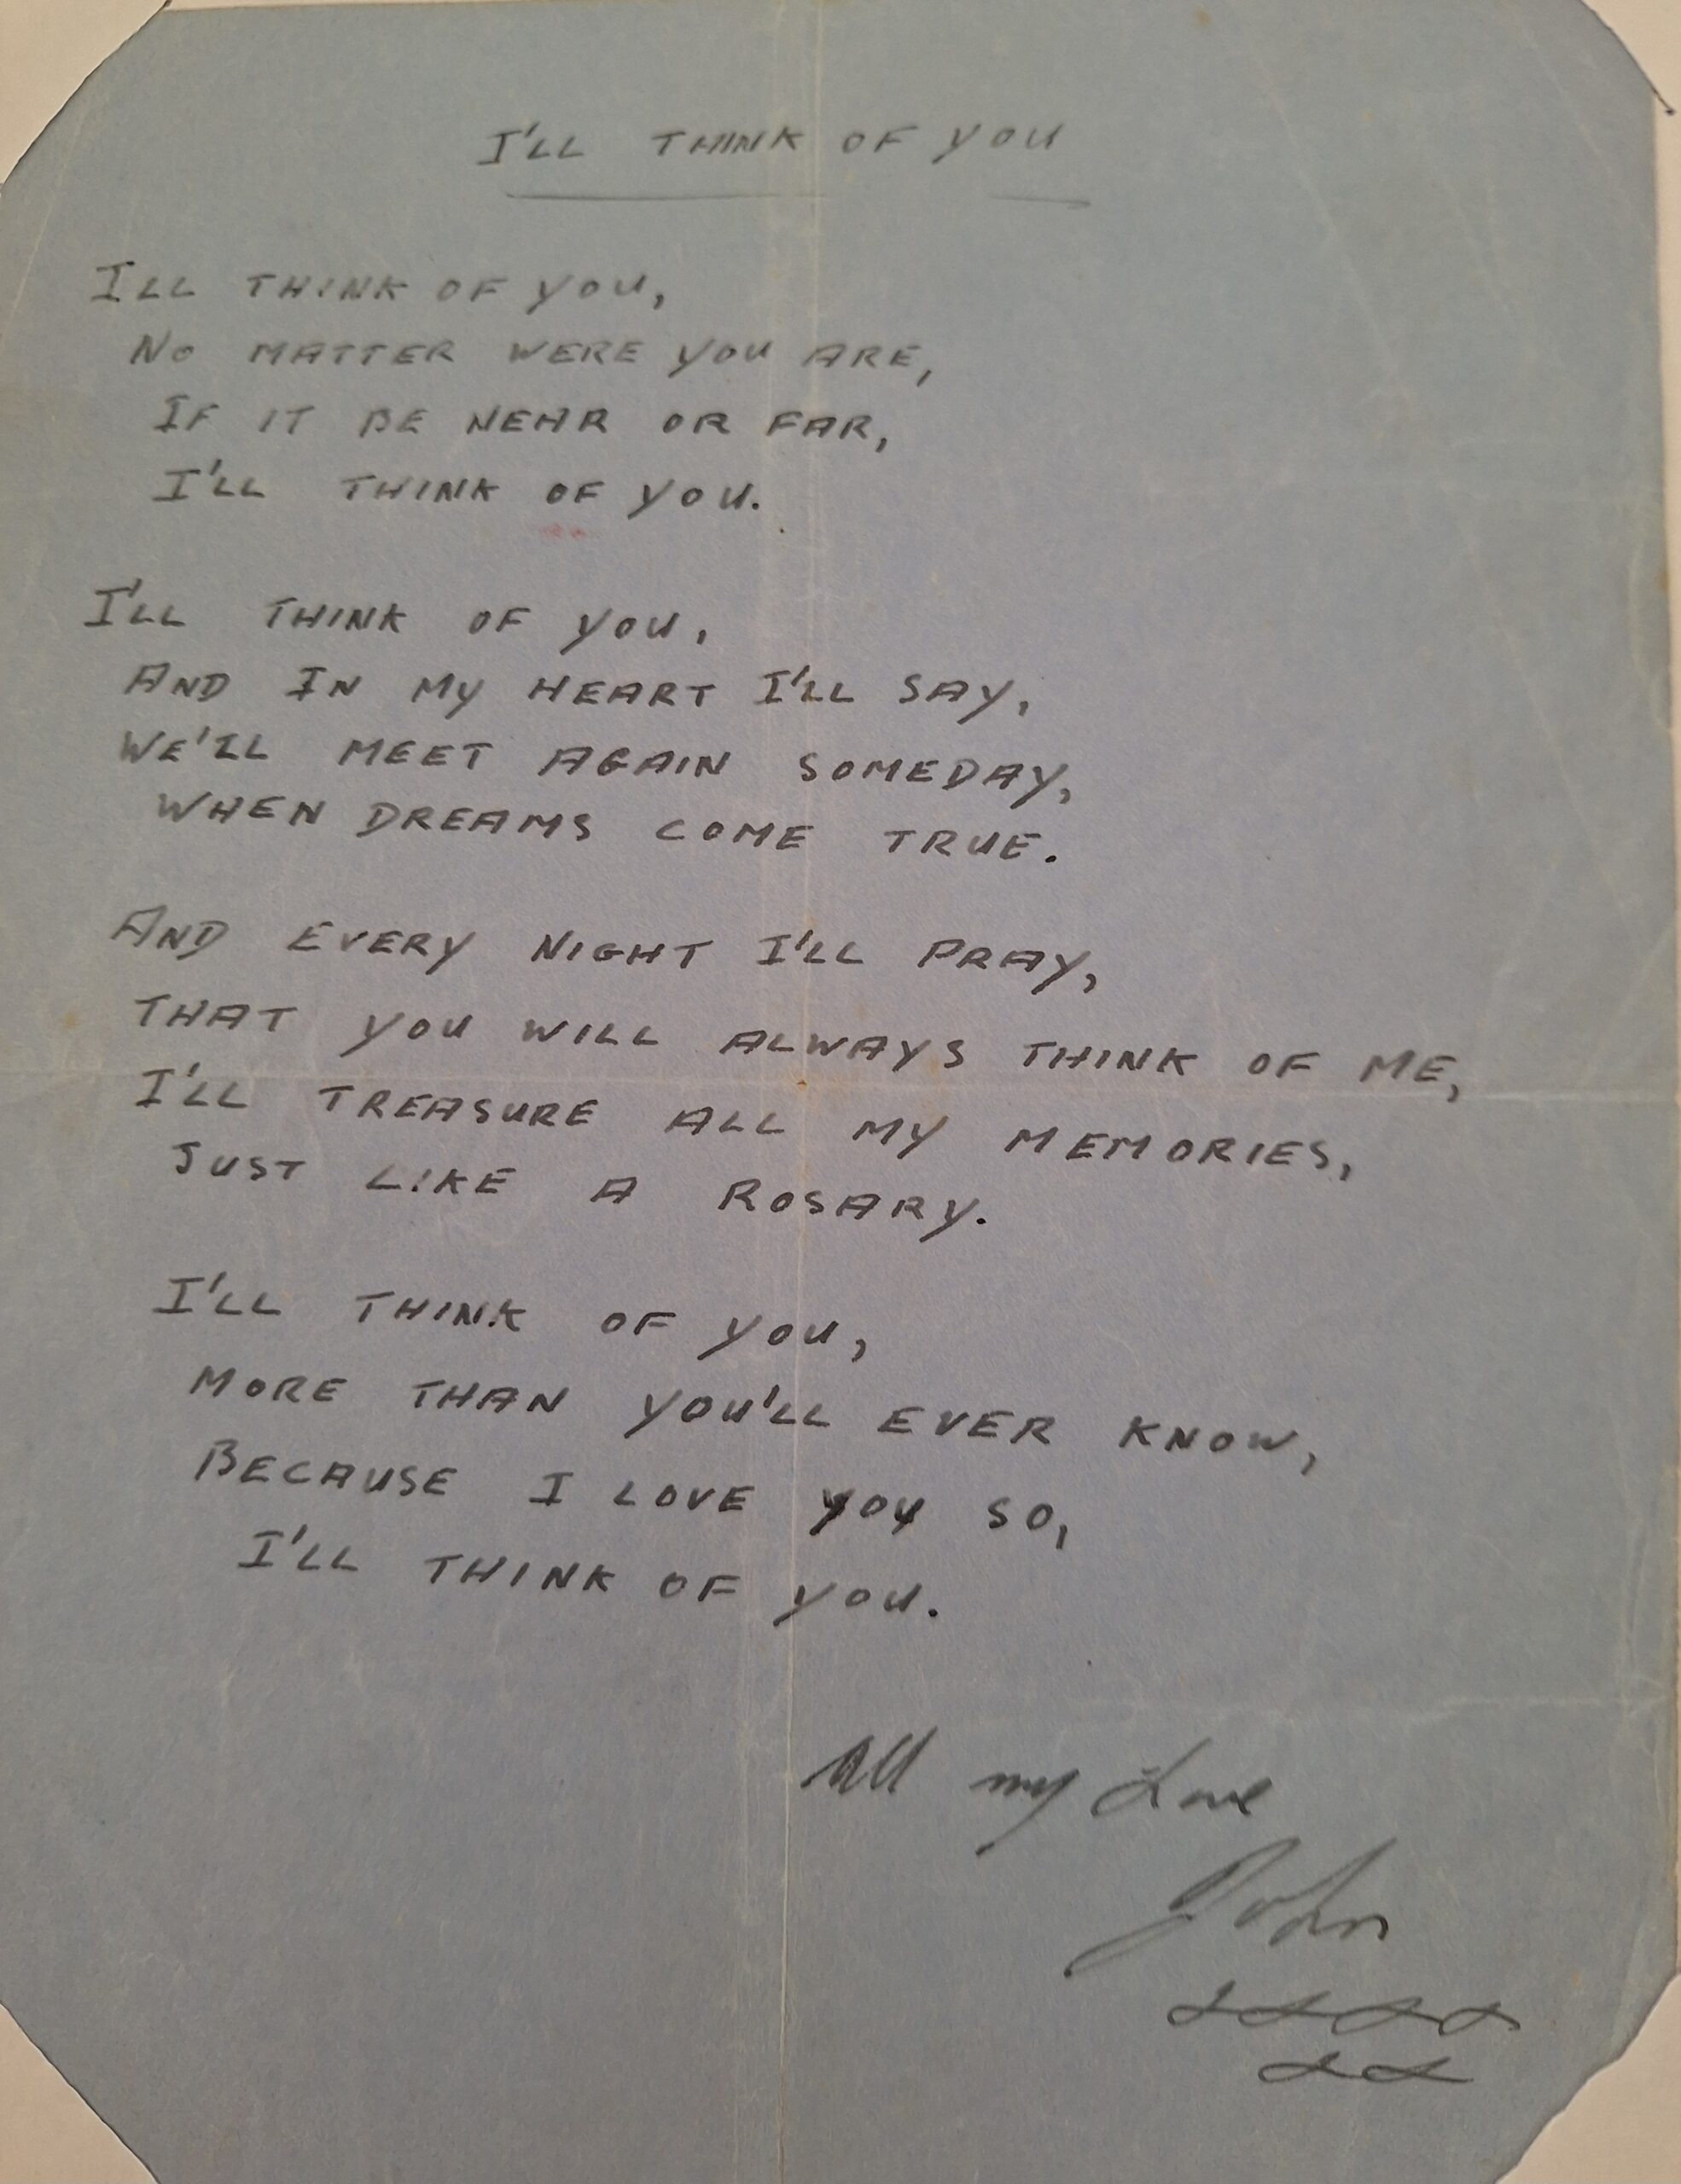 I'LL THINK OF YOU
ILL THINK OF YOU,
NO MATTER WERE YOU ARE,
IF IT BE NEAR OR FAR,
I'LL THINK OF YOU.
I'LL THINK OF YOU,
AND IN MY HEART I'LL SAY,
WE'LL MEET AGAIN SOMEDAY,
WHEN DREAMS COME TRUE.
AND EVERY NIGHT I'LL PRAY,
THAT YOU WILL ALWAYS THINK OF ME,
I'LL TREASURE ALL MY MEMORIES,
JUST LIKE A ROSARY.
I'LL THINK OF YOU,
MORE THAN YOU'LL EVER KNOW,
BECAUSE I LOVE YOU SO,
I'LL THINK OF YOU.
All my Love
John
xxxx
xx